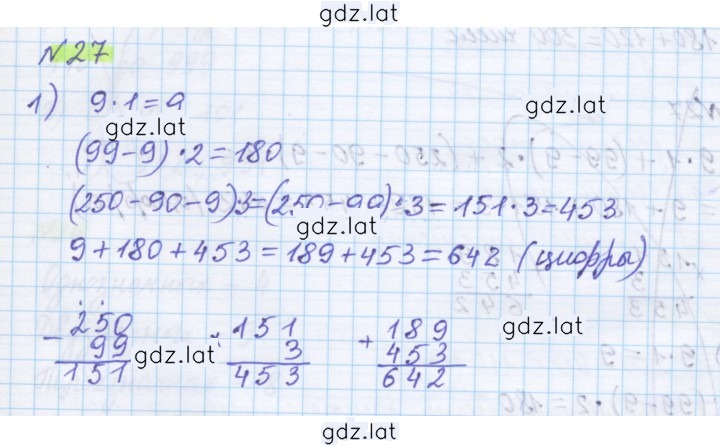 gdz.lat
№27
1) 9·1=9
gdz.lat
gdz.lat
(99-9)·2=180
(250-90-9)·3=(250-99)·3=151·3=453
gdz.lat
9+180+453=189+453=642 (цифры)
- 250 · 151 + 189
99 gdz.lat 3 gdz.lat 453
151 453 642
gdz.lat